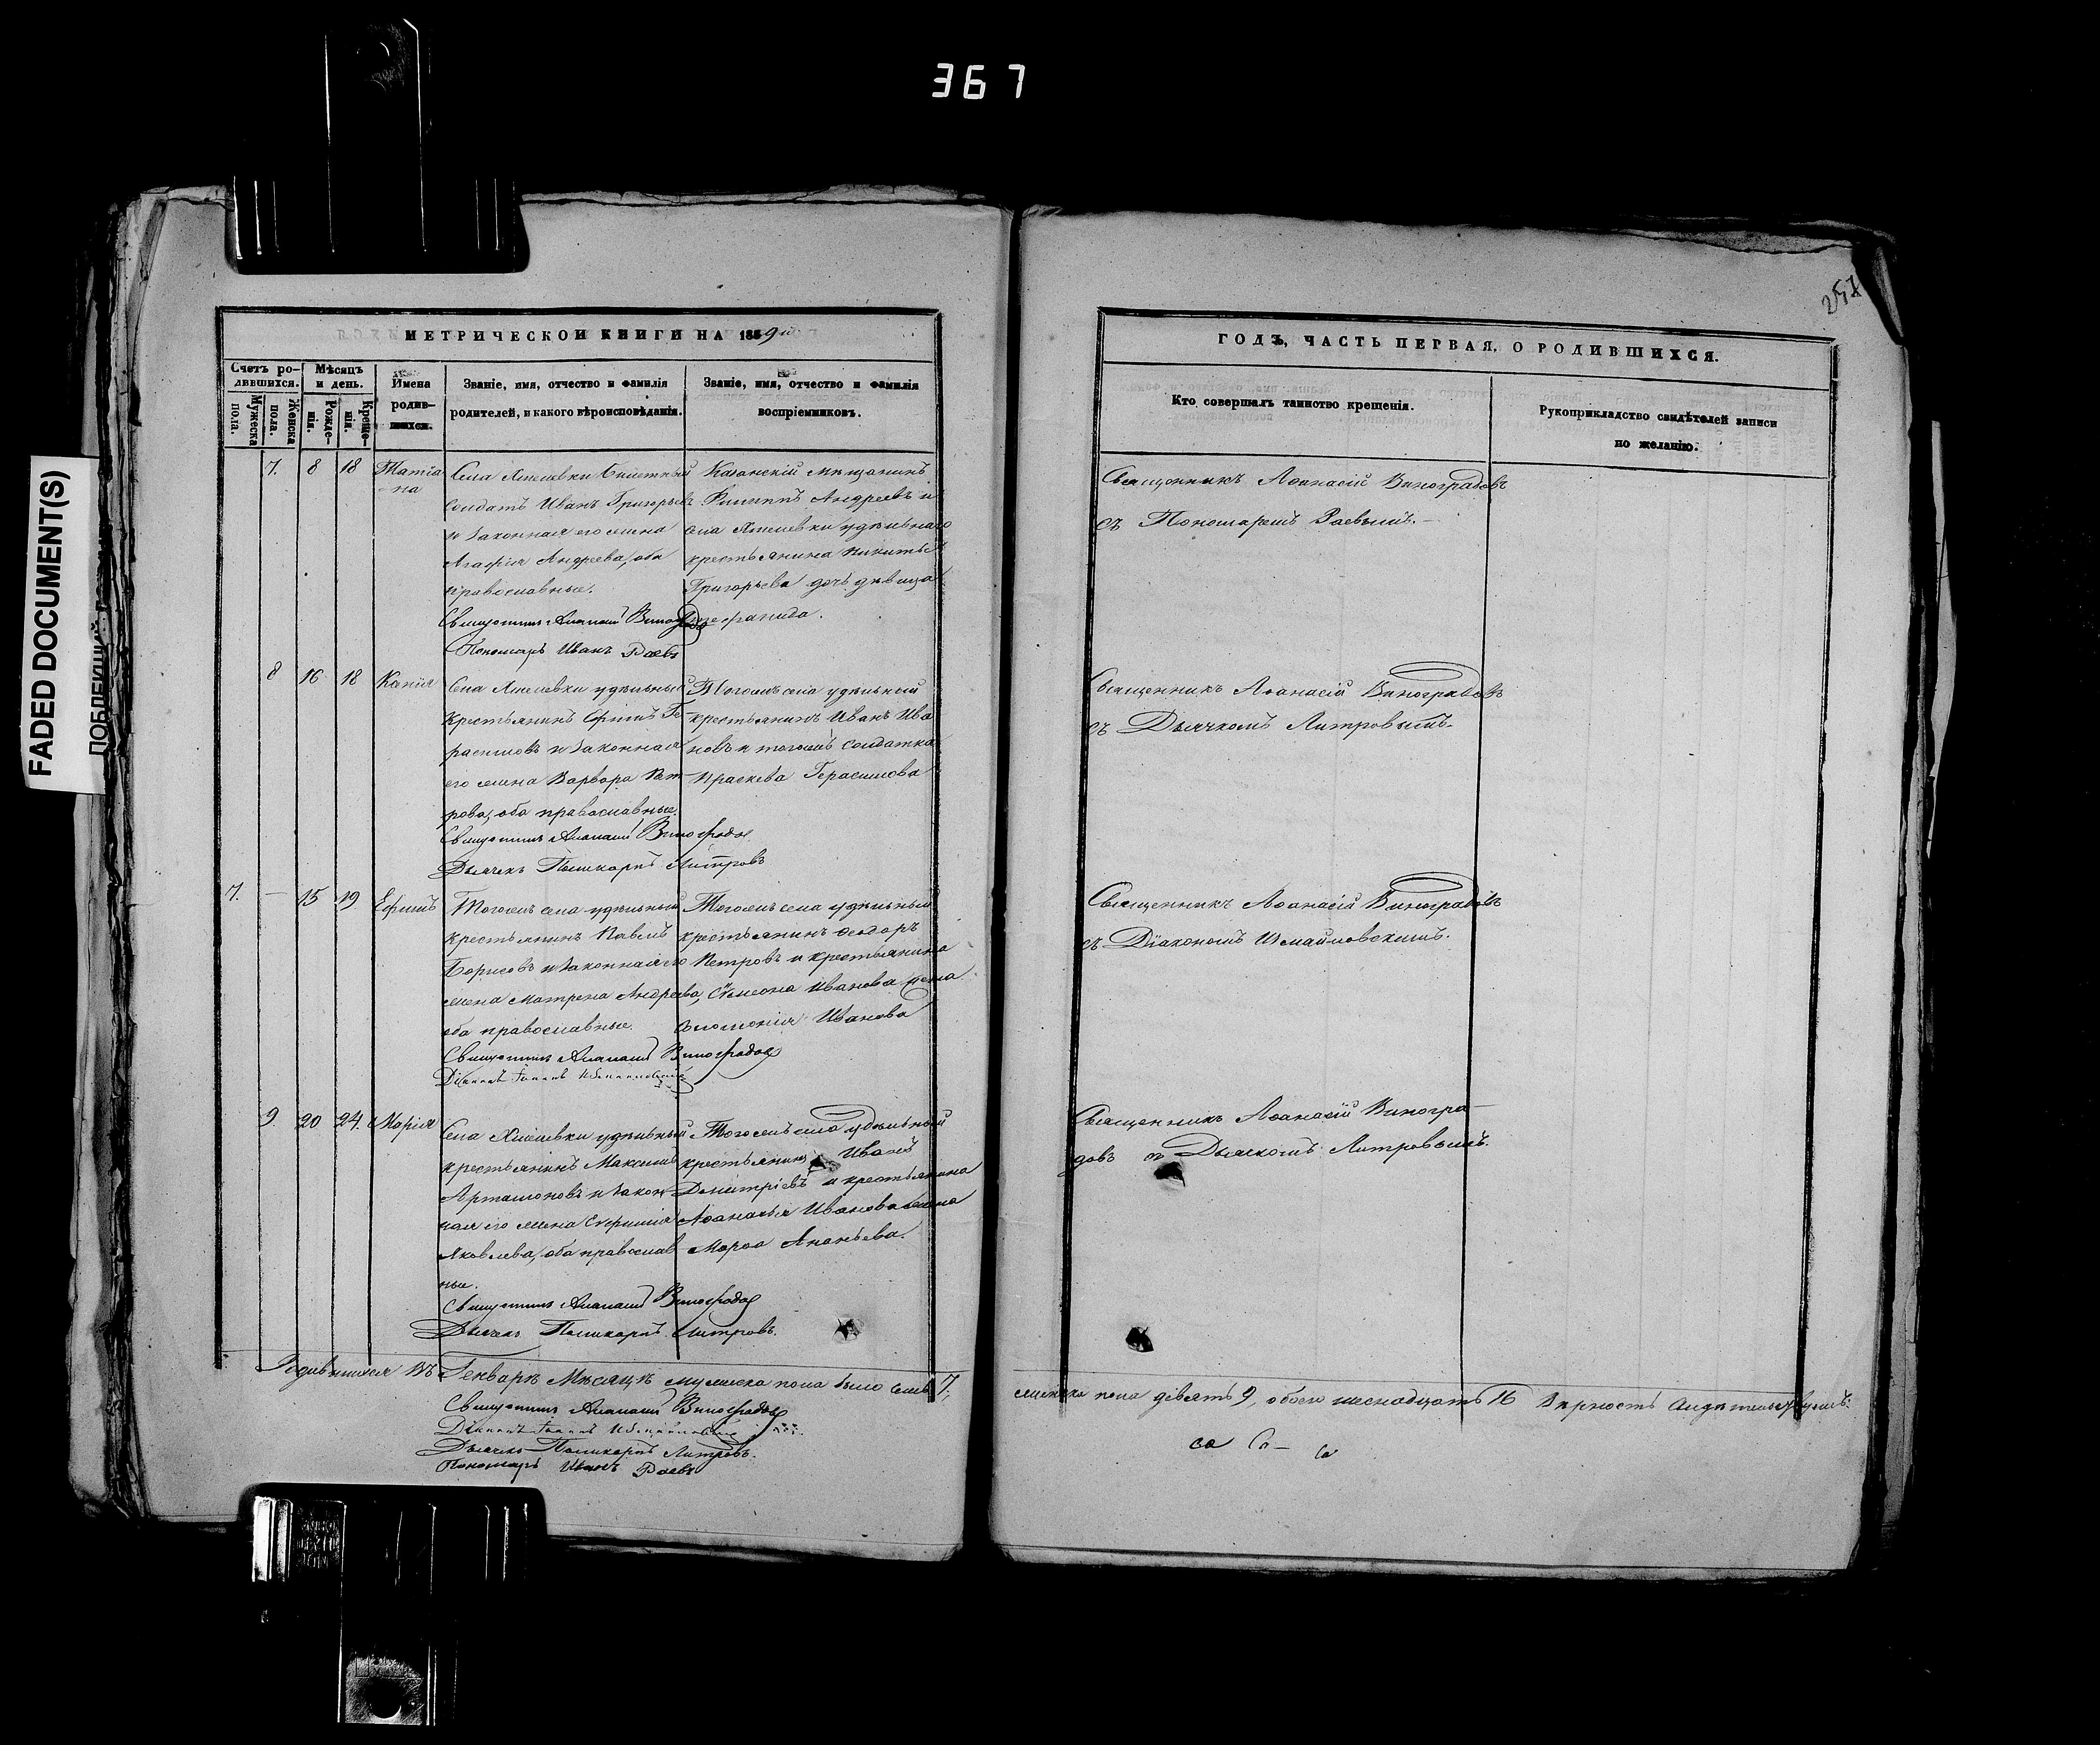 367
FADED DOCUMENT(S)
257
МЕТРИЧЕСКОЙ КНИГИ НА 1859й
ГОДЪ, ЧАСТЬ ПЕРВАЯ, О РОДИВШИХСЯ.
Счетъ родившихся.
Мужеска пола.
Женска пола.
Мѣсяцъ и день.
Рожденія.
Крещенія.
Имена родившихся.
Званіе, имя, отчество и фамилія
родителей, и какого вѣроисповѣданія.
Званіе, имя, отчество и фамилія
воспріемниковъ.
Кто совершалъ таинство крещенія.
Рукоприкладство свидѣтелей записи
по желанію.
7. 8 18 Татіа
на
Села билетный
солдатъ Иванъ Григорьевъ
и законная его жена
Агафія Андреева, оба
православные.
Священникъ Афанасій Виноградов
Пономарь Иванъ Раевъ
Казанскій мѣщанинъ
Филиппъ Андреевъ и
села удѣльнаго
крестьянина Никиты
Григорьева дочь дѣвица
Священникъ Аѳанасій Виноградовъ
съ Пономаремъ Раевымъ.
8 16 18 Ксенія
Села удѣльный
крестьянинъ Ефимъ Ге-
расимовъ и законная
его жена Варвара Пет-
рова, оба православные.
Священникъ Афанасій Виноградов
Дьячекъ Поликарпъ Литровъ
Того же села удѣльный
крестьянинъ Иванъ Ива
новъ и того же солдатка
Праскева Герасимова
Священникъ Аѳанасій Виноградовъ
съ Дьячкомъ Литровымъ.
7. — 15 19 Ефимъ
Того же села удѣльный
крестьянинъ Павелъ
Борисовъ и законная его
жена Матрена Андреева,
оба православные.
Священникъ Афанасій Виноградов
Діаконъ Іоаннъ Измайловскій
Того же села удѣльный
крестьянинъ Ѳеодоръ
Петровъ и крестьянина
Симеона Иванова жена
Соломонія Иванова
Священникъ Аѳанасій Виноградовъ
съ Діакономъ Измайловскимъ.
9. 20 24. Марія
Села удѣльный
крестьянинъ Максимъ
Артамоновъ и закон
ная его жена Евфимія
Яковлева, оба православ
ные.
Священникъ Афанасій Виноградов
Дьячекъ Поликарпъ Литровъ.
Того же села удѣльный
крестьянинъ Иванъ
Димитріевъ и крестьянина
Аѳанасья Иванова жена
Марѳа Ананьева.
Священникъ Аѳанасій Виногра-
довъ съ Дьячкомъ Литровымъ.
Родившихся въ Генварѣ Мѣсяцѣ мужеска пола было семь 7,
женска пола девять 9, обоего шеснадцать 16
Священникъ Афанасій Виноградов
Діаконъ Іоаннъ Измайловскій
Дьячекъ Поликарпъ Литровъ.
Пономарь Иванъ Раевъ